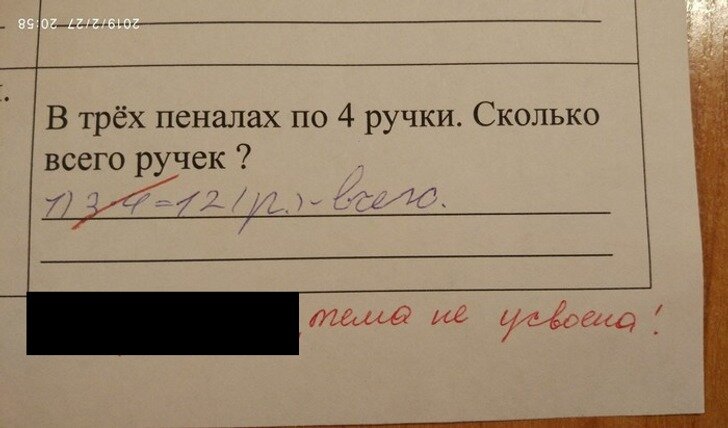 2019/2/27 20:58
В трёх пеналах по 4 ручки. Сколько
всего ручек ?
1) 3·4=12 (р.) - всего.
, тема не усвоена!